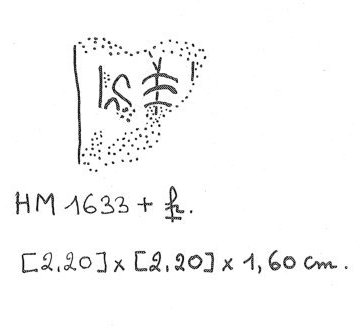 HM 1633 + fr.
[2,20] x [2,20] x 1,60 cm.